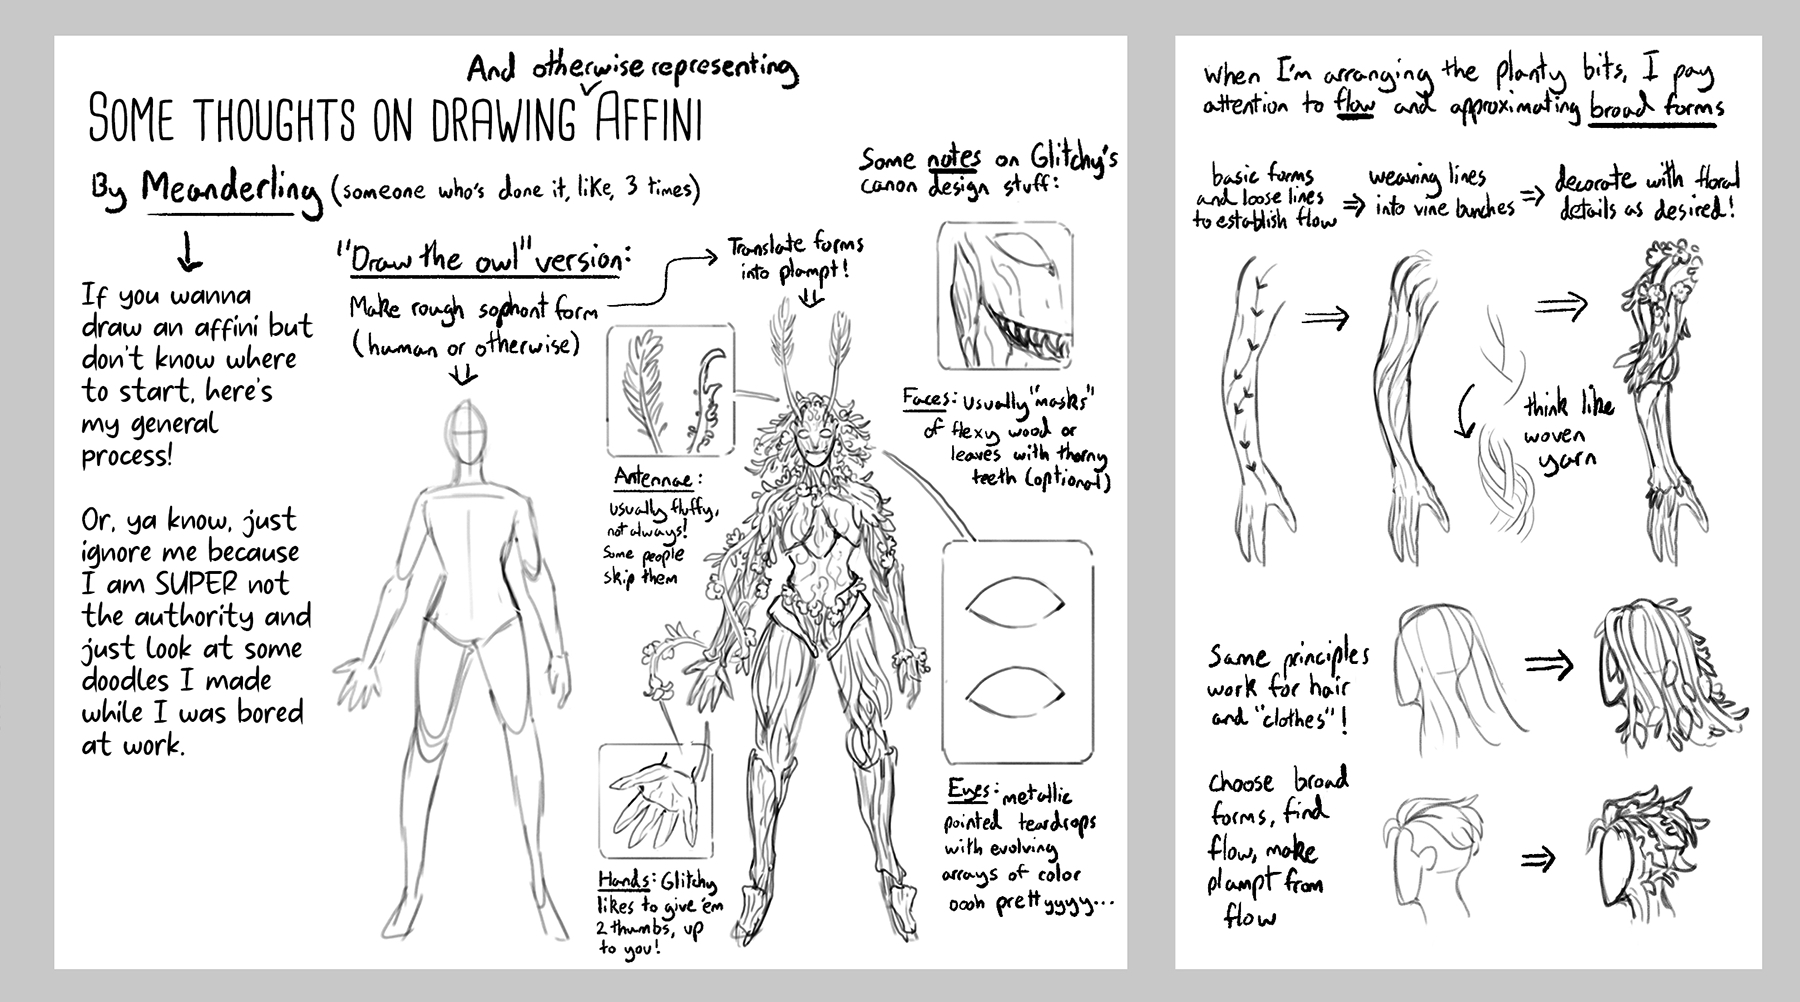 And otherwise representing
SOME THOUGHTS ON DRAWING AFFINI
By Meanderling (someone who's done it, like, 3 times)
If you wanna
draw an affini but
don't know where
to start, here's
my general
process!
Or, ya know, just
ignore me because
I am SUPER not
the authority and
just look at some
doodles I made
while I was bored
at work.
"Draw the owl" version:
Make rough sophont form
(human or otherwise)
Translate forms
into plampt!
Some notes on Glitchy's
canon design stuff:
Antennae:
usually fluffy,
not always!
Some people
skip them
Faces: Usually "masks"
of flexy wood or
leaves with thorny
teeth (optional)
Hands: Glitchy
likes to give 'em
2 thumbs, up
to you!
Eyes: metallic
pointed teardrops
with evolving
arrays of color
oooh prettyyyy...
When I'm arranging the planty bits, I pay
attention to flow and approximating broad forms
basic forms
and loose lines
to establish flow
weaving lines
into vine bunches
decorate with floral
details as desired!
think like
woven
yarn
Same principles
work for hair
and "clothes"!
choose broad
forms, find
flow, make
plampt from
flow